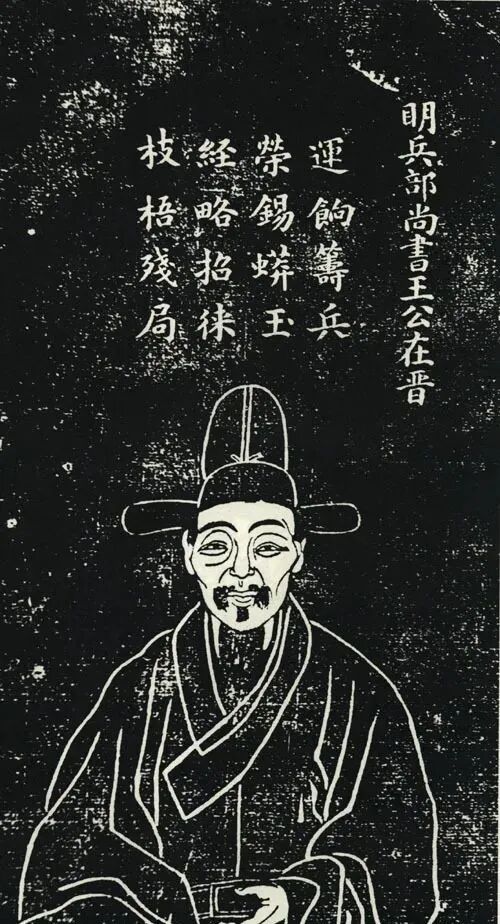 明兵部尚書王公在晋
運餉籌兵
榮錫蟒玉
経略招徠
枝梧殘局